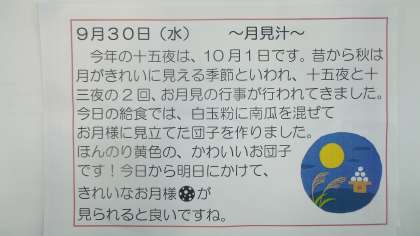 ９月３０日（水）　～月見汁～
今年の十五夜は、１０月１日です。昔から秋は
月がきれいに見える季節といわれ、十五夜と十
三夜の２回、お月見の行事が行われてきました。
今日の給食では、白玉粉に南瓜を混ぜて
お月様に見立てた団子を作りました。
ほんのり黄色の、かわいいお団子
です！今日から明日にかけて、
きれいなお月様が
見られると良いですね。